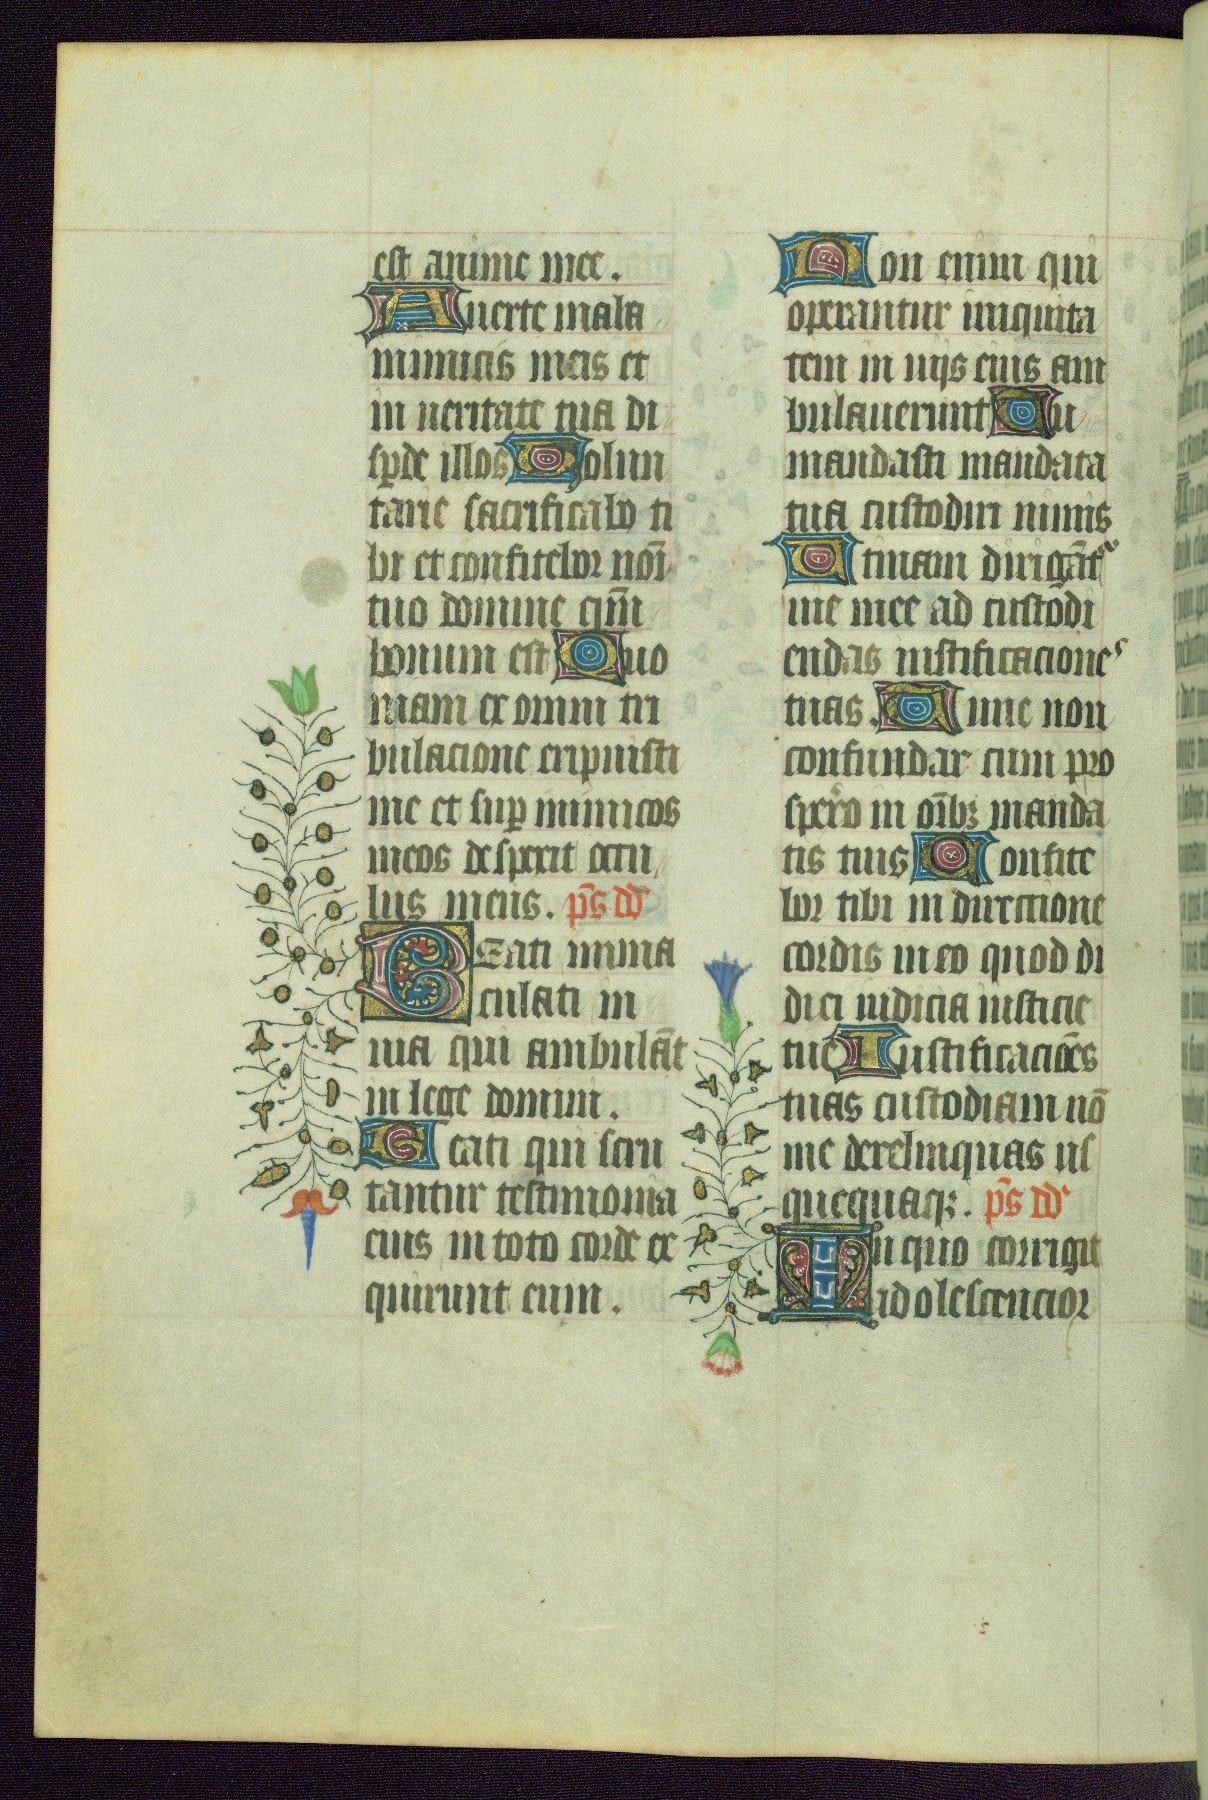 est anime mee.
Auerte mala
inimicis meis et
in ueritate tua di
sp̱de illos Uolun
tarie sacrificabo ti
bi et confitebor nōi
tuo domine qm̄
bonum est Quo
niam ex omni tri
bulacione eripuisti
me et sup̱ inimicos
meos despexit ocu
lus meus. ps̄ dd̄
BEati imma
culati in
uia qui ambulāt
in lege domini.
Beati qui scru
tantur testimonia
eius in toto corde ex
quirunt eum.
Non enim qui
operantur iniquita
tem in uijs eius am
bulauerunt Tu
mandasti mandata
tua custodiri nimis
Utinam dirigāt᷑
uie mee ad custodi
endas iustificaciones
tuas. Tunc non
confundar cum pro
spexero in oībꝫ manda
tis tuis Confite
bor tibi in directione
cordis in eo quod di
dici iudicia iusticie
tue Iustificaciōes
tuas custodiam nō
me derelinquas us
quequaqꝫ. ps̄ dd̄
In quo corrigit
adolescencior